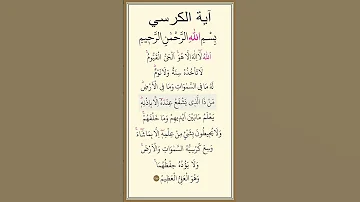 آية الكرسي
بِسْمِ اللهِ الرَّحْمٰنِ الرَّحِيمِ
اَللهُ لَآ اِلٰهَ اِلَّا هُوَ اَلْحَيُّ الْقَيُّومُ
لَا تَأْخُذُهُ سِنَةٌ وَلَا نَوْمٌ
لَهُ مَا فِى السَّمٰوَاتِ وَمَا فِى الْاَرْضِ
مَنْ ذَا الَّذِى يَشْفَعُ عِنْدَهُٓ اِلَّا بِاِذْنِهِ
يَعْلَمُ مَا بَيْنَ اَيْدِيهِمْ وَمَا خَلْفَهُمْ
وَلَا يُحِيطُونَ بِشَىْءٍ مِنْ عِلْمِهِٓ اِلَّا بِمَا شَآءَ
وَسِعَ كُرْسِيُّهُ السَّمٰوَاتِ وَالْاَرْضَ
وَلَا يَؤُدُهُ حِفْظُهُمَا
وَهُوَ الْعَلِىُّ الْعَظِيمُ